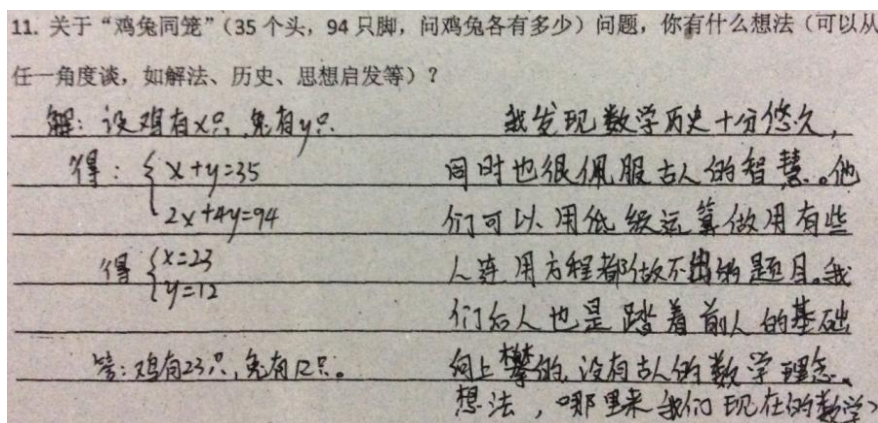 11. 关于“鸡兔同笼”（35 个头，94 只脚，问鸡兔各有多少）问题，你有什么想法（可以从
任一角度谈，如解法、历史、思想启发等）？
解：设鸡有x只，兔有y只.
得：{x+y=35
2x+4y=94
得{x=23
y=12
答：鸡有23只，兔有12只。
我发现数学历史十分悠久，
同时也很佩服古人的智慧。他
们可以用低级运算做用有些
人连用方程都做不出的题目。我
们后人也是踏着前人的基础
向上攀的，没有古人的数学理念、
想法，哪里来我们现在的数学？